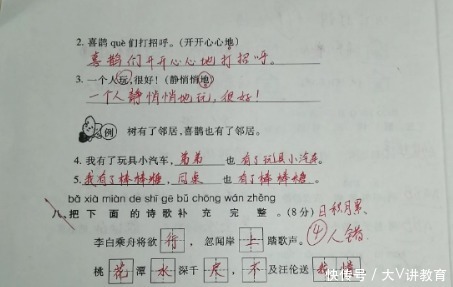 2. 喜鹊 què 们打招呼。(开开心心地)
喜鹊们开开心心地打招呼。
3. 一个人玩,很好!(静悄悄地)
一个人静悄悄地玩,很好!
例 树有了邻居,喜鹊也有了邻居。
4. 我有了玩具小汽车,弟弟 也 有了玩具小汽车。
5. 我有了棒棒糖,同桌 也 有了棒棒糖。
bǎ xià miàn de shī gē bǔ chōng wán zhěng
八、把下面的诗歌补充完整。(8分) 日积月累
李白乘舟将欲 行 ,忽闻岸 上 踏歌声。 ④人错
桃 花 潭 水 深千 尺 , 不 及汪伦送
快传号/大V讲教育